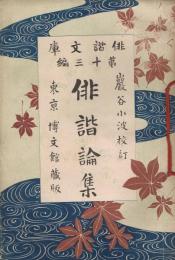 俳諧文庫
第十三編
巖谷小波校訂
俳諧論集
東京 博文館藏版